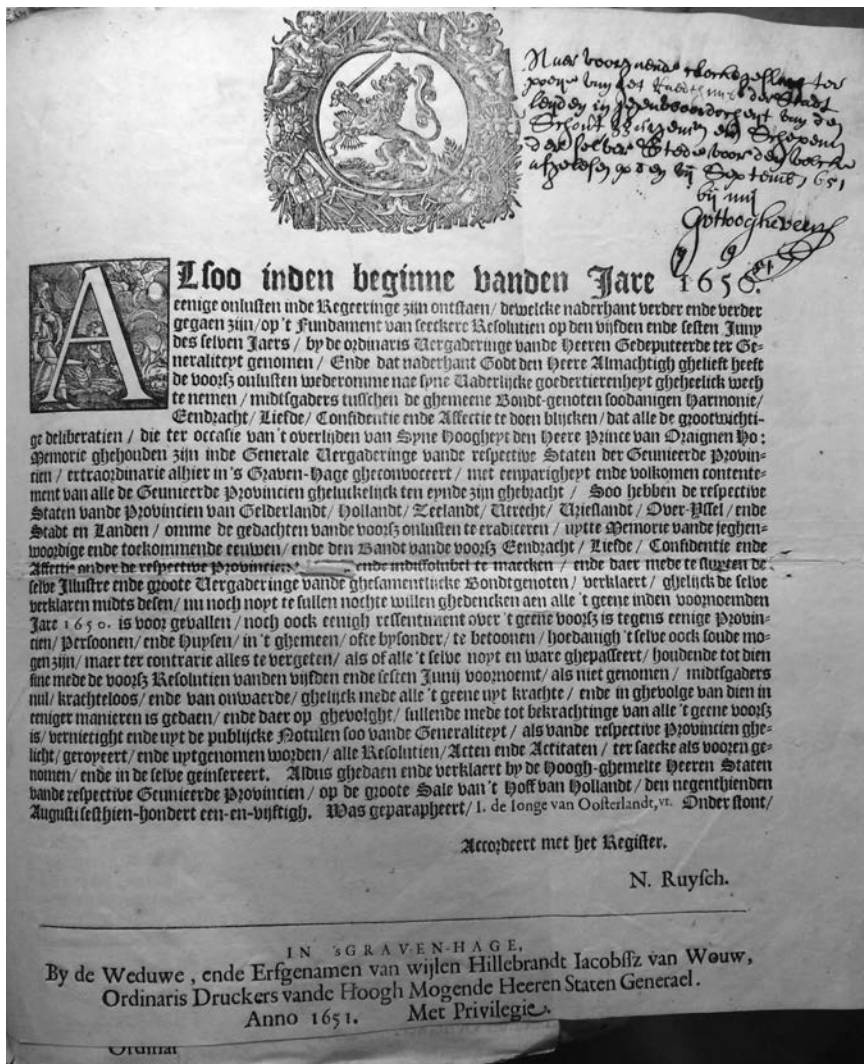 Naer voorgaende clockegeslagh ter
poeye van het Raedthuis der Stadt
Leyden in jegenwoordicheyt van den
Schout Burgemrn en Schepenen
der selver Stede voor den volcke
affgelesen op den Septemb. 1651
bij mij
ALsoo inden beginne vanden Jare 1650.
eenige onlusten inde Regeeringe zijn ontstaen / dewelcke naderhant verder ende verder
gegaen zijn / op 't Fundament van seeckere Resolutien op den vijfden ende sesten Juny
des selven Jaers / by de ordinaris Vergaderinge vande Heeren Gedeputeerde ter Ge-
neraliteyt genomen / Ende dat naderhant Godt den Heere Almachtigh ghelieft heeft
de voorsz onlusten wederomme nae syne Vaderlijcke goedertierenheyt gheheelick wech
te nemen / midtsgaders tusschen de ghemeene Bondt-genoten soodanigen Harmonie /
Eendracht / Liefde / Confidentie ende Affectie te doen blijcken / dat alle de grootwichti-
ge deliberatien / die ter occasie van 't overlijden van Syne Hoogheyt den Heere Prince van Oraignen Ho:
Memorie ghehouden zijn inde Generale Vergaderinge vande respective Staten der Geunieerde Provin-
cien / extraordinarie alhier in 's Graven-Hage gheconvoceert / met eenparigheyt ende volkomen contente-
ment van alle de Geunieerde Provincien gheluckelijck ten eynde zijn ghebracht / Soo hebben de respective
Staten vande Provincien van Gelderlandt / Hollandt / Zeelandt / Utrecht / Vrieslandt / Over-Yssel / ende
Stadt en Landen / omme de gedachten vande voorsz onlusten te eradiceren / uytte Memorie vande jeghen-
woordige ende toekommende eeuwen / ende den Bandt vande voorsz Eendracht / Liefde / Confidentie ende
Affectie onder de respective Provincien ende indissolubel te maecken / ende daer mede te sluyten de
selve Illustre ende groote Vergaderinge vande ghesamentlicke Bondtgenoten / verklaert / ghelijck de selve
verklaren midts desen / nu noch noyt te sullen nochte willen ghedencken aen alle 't geene inden voornoemden
Jare 1650. is voor gevallen / noch oock eenigh ressentiment over 't geene voorsz is tegens eenige Provin-
cien / Persoonen / ende Huysen / in 't ghemeen / ofte bysonder / te betoonen / hoedanigh 't selve oock soude mo-
gen zijn / maer ter contrarie alles te vergeten / als of alle 't selve noyt en ware ghepasseert / houdende tot dien
fine mede de voorsz Resolutien vanden vijfden ende sesten Junij voornoemt / als niet genomen / midtsgaders
nul / krachteloos / ende van onwaerde / ghelijck mede alle 't geene uyt krachte / ende in ghevolge van dien in
eeniger manieren is gedaen / ende daer op ghevolght / sullende mede tot bekrachtinge van alle 't geene voorsz
is / vernietight ende uyt de publijcke Notulen soo vande Generaliteyt / als vande respective Provincien ghe-
licht / geroyeert / ende uytgenomen worden / alle Resolutien / Acten ende Actitaten / ter saecke als vooren ge-
nomen / ende in de selve geinsereert. Aldus ghedaen ende verklaert by de Hoogh-ghemelte Heeren Staten
vande respective Geunieerde Provincien / op de groote Sale van 't Hoff van Hollandt / den negenthienden
Augusti sesthien-hondert een-en-vijftigh. Was geparapheert / I. de Ionge van Oosterlandt, vt. Onder stont /
Accordeert met het Register.
N. Ruysch.
IN 'sGRAVEN-HAGE,
By de Weduwe, ende Erfgenamen van wijlen Hillebrandt Iacobssz van Wouw,
Ordinaris Druckers vande Hoogh Mogende Heeren Staten Generael.
Anno 1651. Met Privilegie.
Ordinar